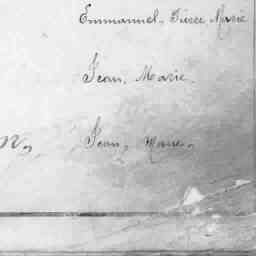 Emmanuel, Pierre Marie
Jean, Marie.
Jean, Marie.